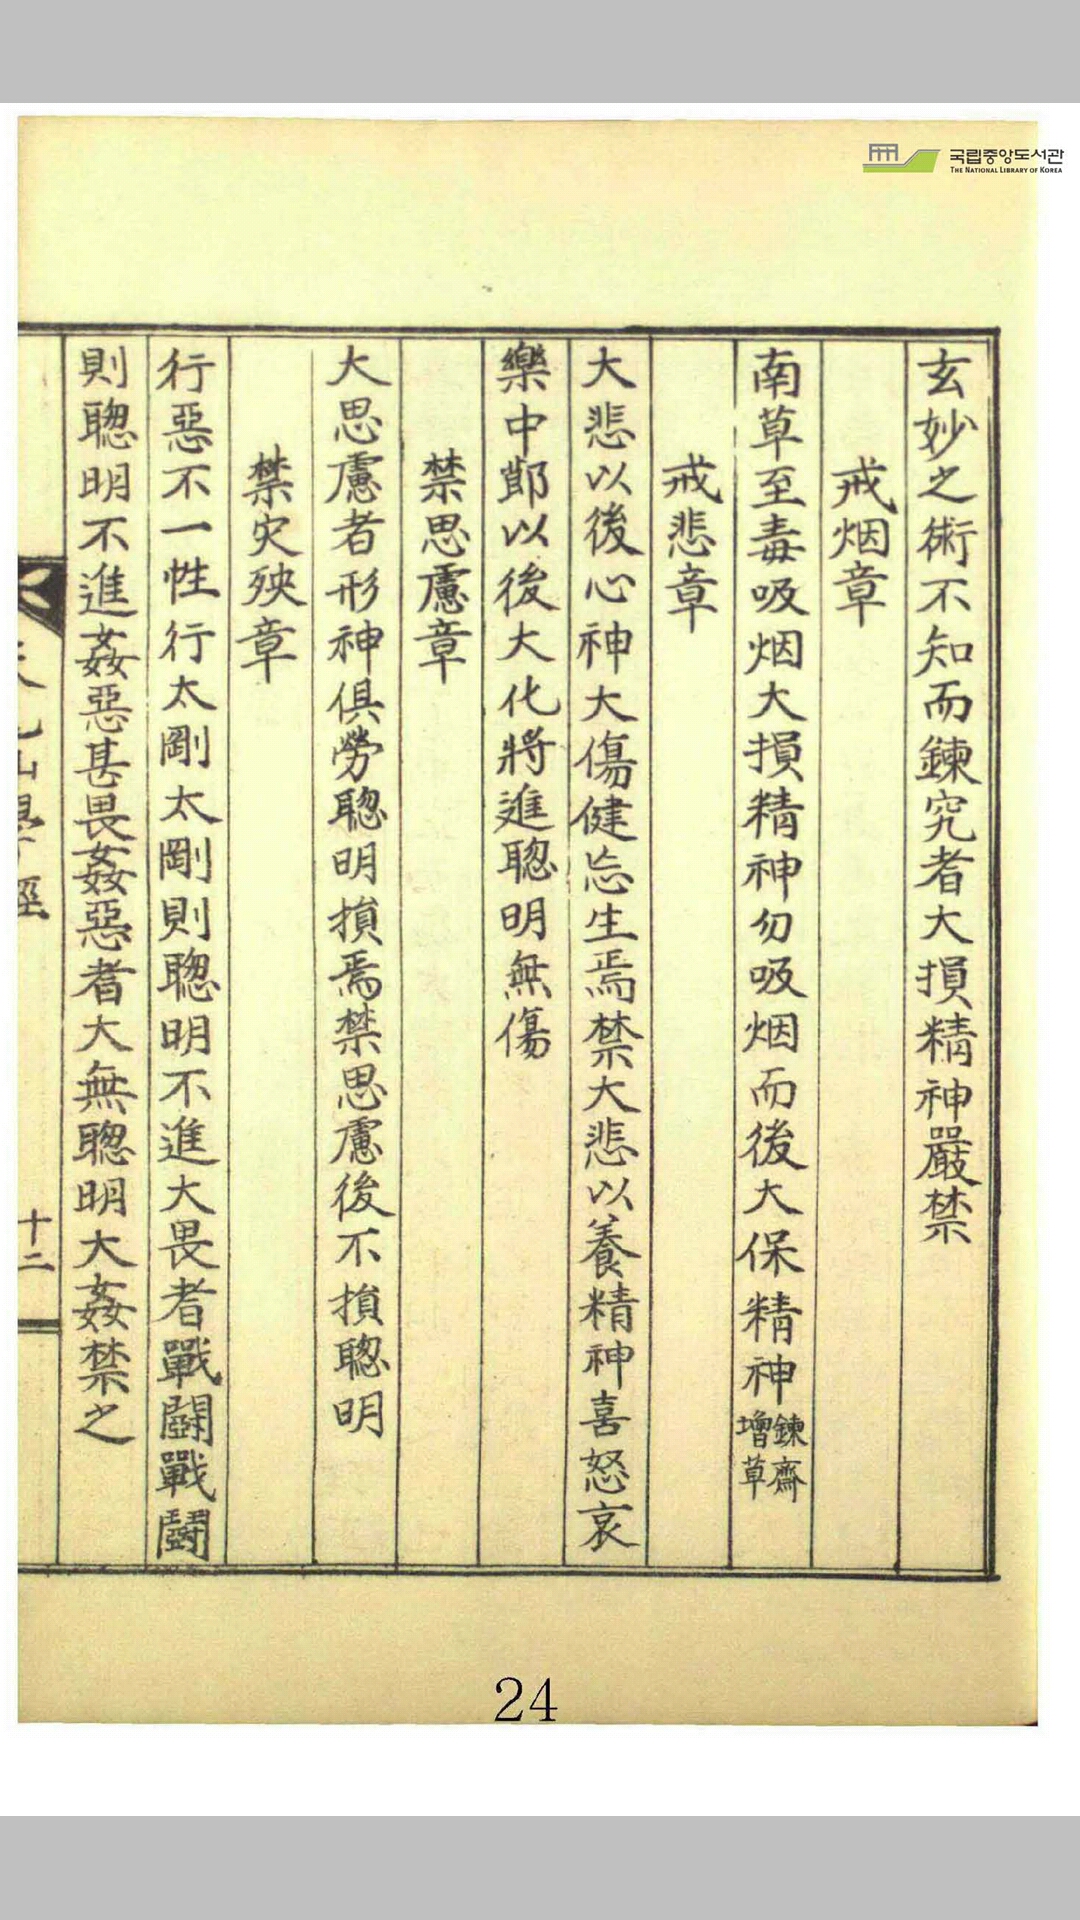 국립중앙도서관
THE NATIONAL LIBRARY OF KOREA
玄妙之術不知而鍊究者大損精神嚴禁
戒烟章
南草至毒吸烟大損精神勿吸烟而後大保精神鍊齋增草
戒悲章
大悲以後心神大傷健忘生焉禁大悲以養精神喜怒哀
樂中節以後大化將進聰明無傷
禁思慮章
大思慮者形神俱勞聰明損焉禁思慮後不損聰明
禁灾殃章
行惡不一性行太剛太剛則聰明不進大畏者戰鬪戰鬪
則聰明不進姦惡甚畏姦惡者大無聰明大姦禁之
經
十二
24